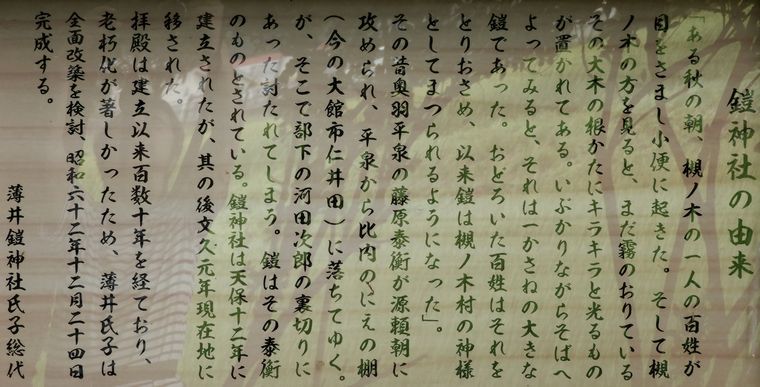 鎧神社の由来
「ある秋の朝、槻ノ木の一人の百姓が
目をさまし小便に起きた。そして槻
ノ木の方を見ると、まだ霧のおりている
その大木の根かたにキラキラと光るもの
が置かれてある。いぶかりながらそばへ
よってみると、それは一かさねの大きな
鎧であった。おどろいた百姓はそれを
とりおさめ、以来鎧は槻ノ木村の神様
としてまつられるようになった」。
その昔奥羽平泉の藤原泰衡が源頼朝に
攻められ、平泉から比内のにえの棚
(今の大館市仁井田)に落ちてゆく。
が、そこで部下の河田次郎の裏切りに
あった討たれてしまう。鎧はその泰衡
のものとされている。鎧神社は天保十二年に
建立されたが、其の後文久元年現在地に
移された。
拝殿は建立以来百数十年を経ており、
老朽化が著しかったため、薄井氏子は
全面改築を検討、昭和六十二年十二月二十四日
完成する。
薄井鎧神社氏子総代